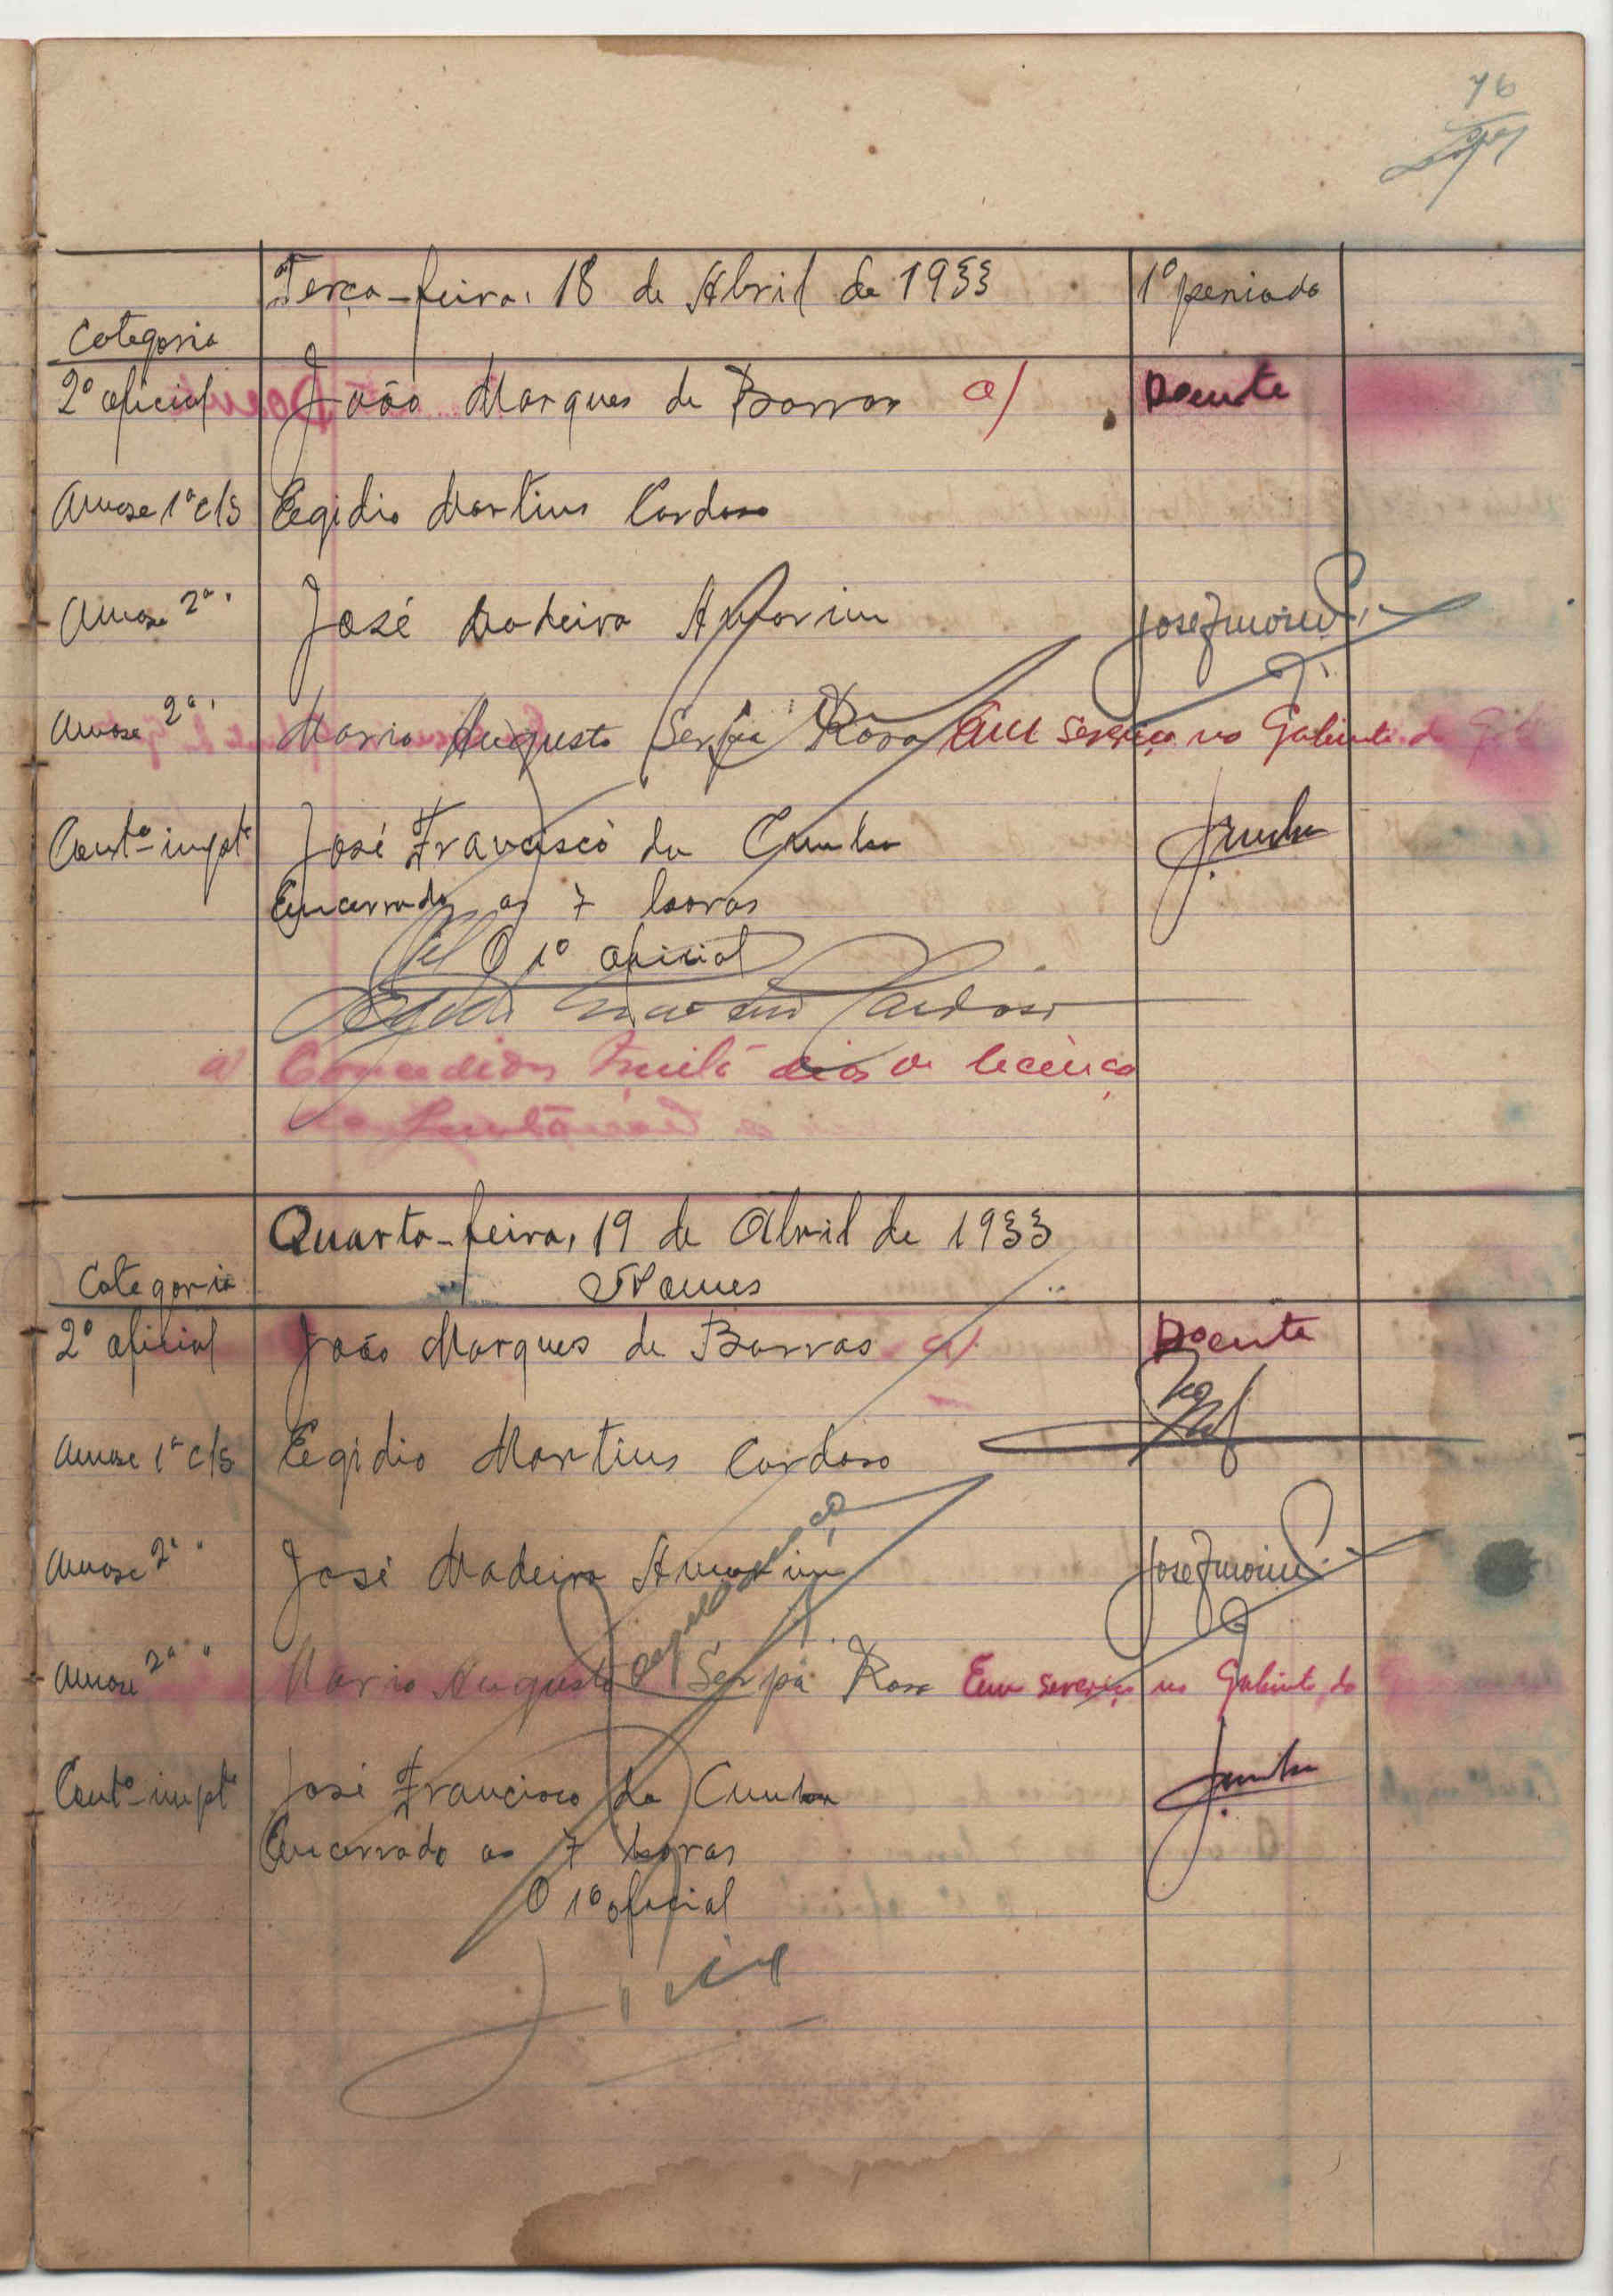 76
Terça-feira, 18 de Abril de 1933 1º periodo
Categoria
2º oficial João Marques de Barros a) Doente
1ª cls Egidio Martins Cardoso
2ª " José Madeira Amorim José Amorim
2ª " Mario Augusto Serpa Rosa Em serviço no Gabinete do
Contº impte José Francisco da Cunha JCunha
Encerrado as 7 horas
Pel O 1º oficial
Egidio Martins Cardoso
a) Concedidos trinta dias de licença
Quarta-feira, 19 de Abril de 1933
Categoria Nomes
2º oficial João Marques de Barros a) Doente
1ª cls Egidio Martins Cardoso
2ª " José Madeira Amorim José Amorim
2ª " Mario Augusto Serpa Rosa Em serviço no Gabinete do
Contº impte José Francisco da Cunha JCunha
Encerrado as 7 horas
O 1º oficial